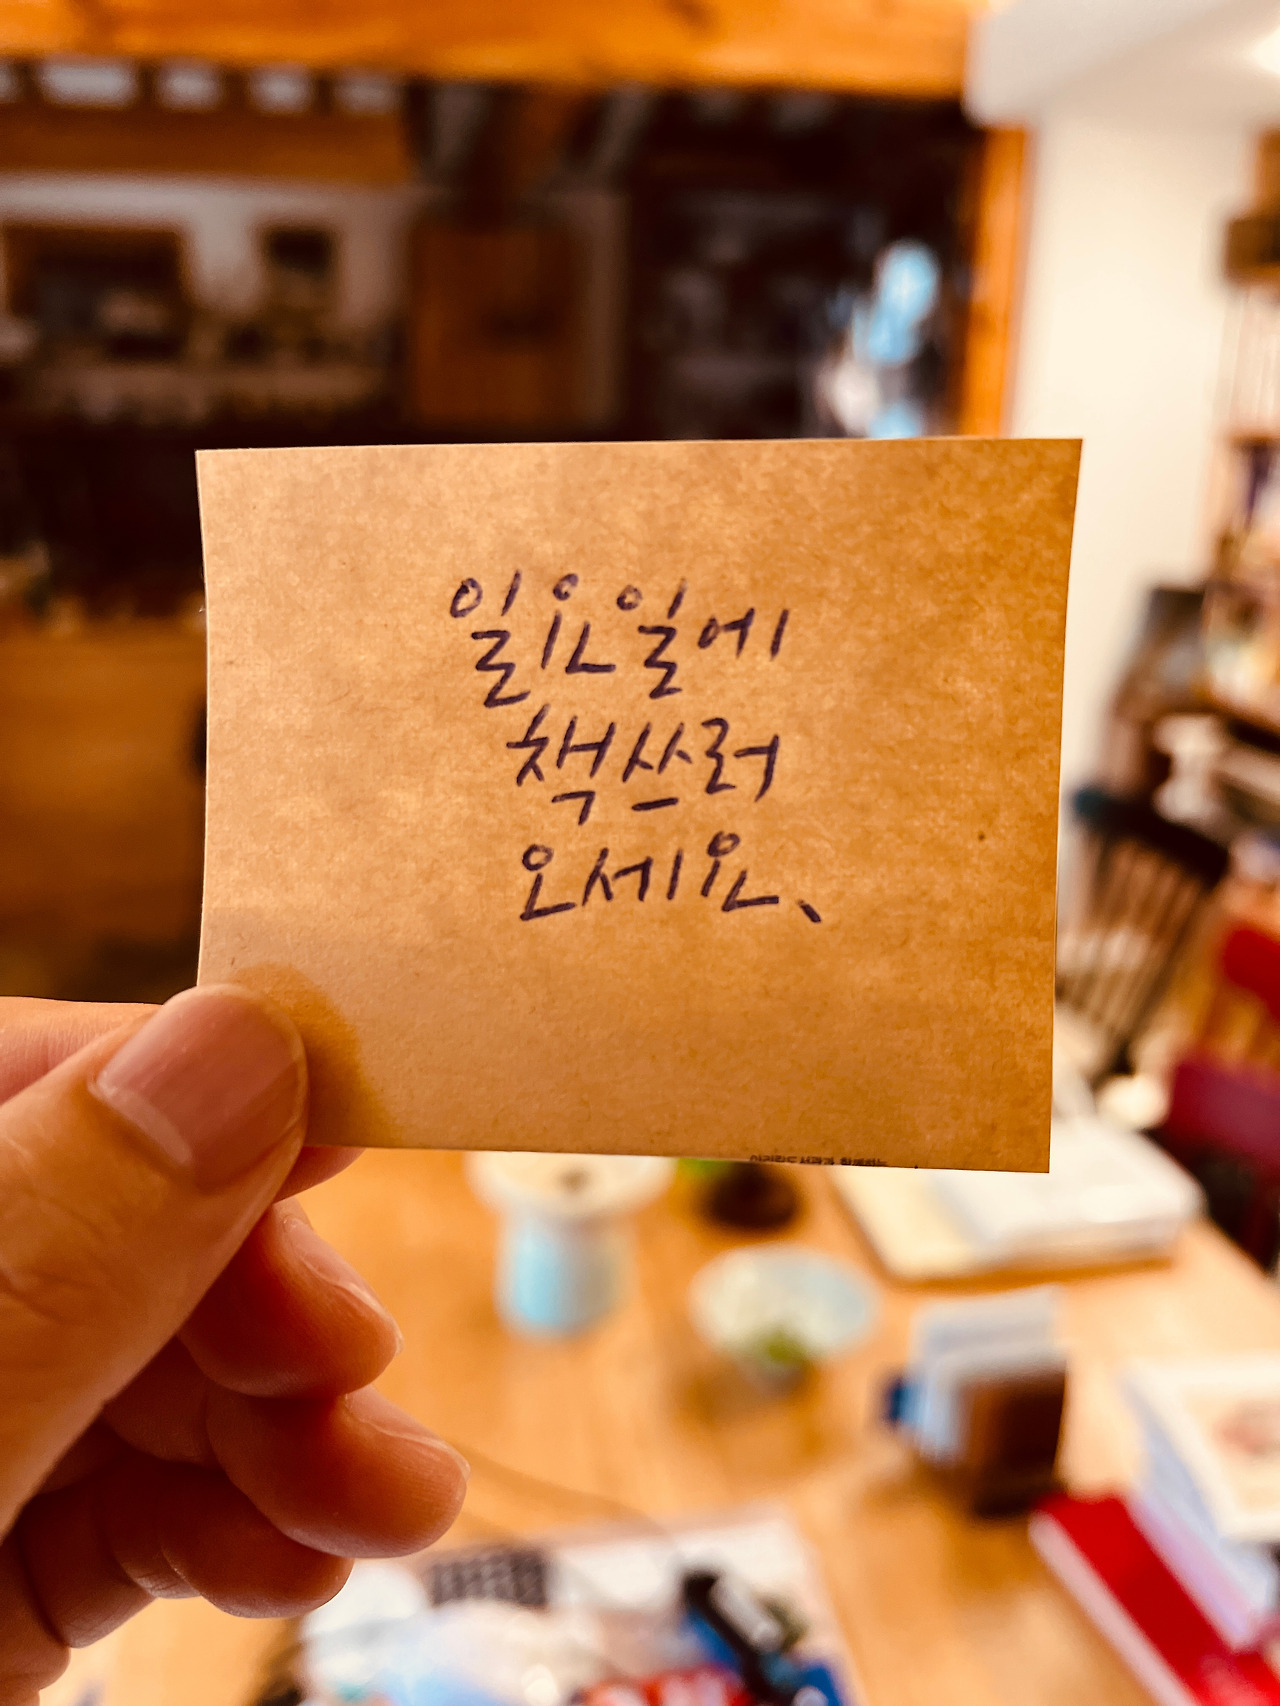 일요일에
책쓰러
오세요、